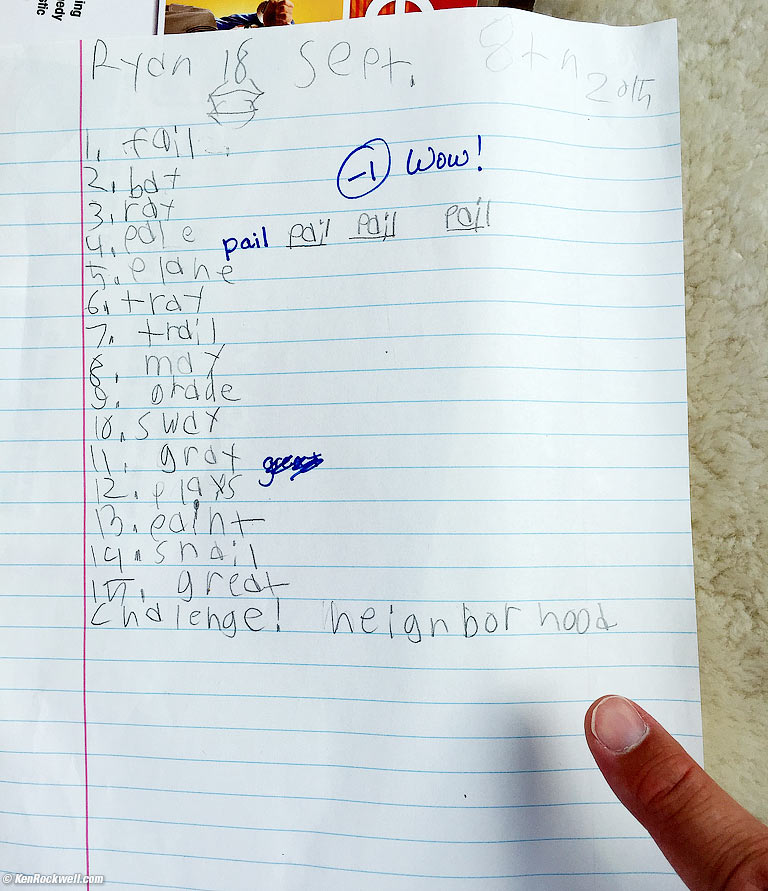 ing
edy
stic
Ryan 18 Sept. 8th 20th
1. fail
-1 Wow!
2. bay
3. ray
4. pale pail pail pail pail
5. plane
6. tray
7. trail
8. may
9. grade
10. sway
11. gray
12. plays
13. paint
14. snail
15. great
Challenge! neighborhood
© KenRockwell.com